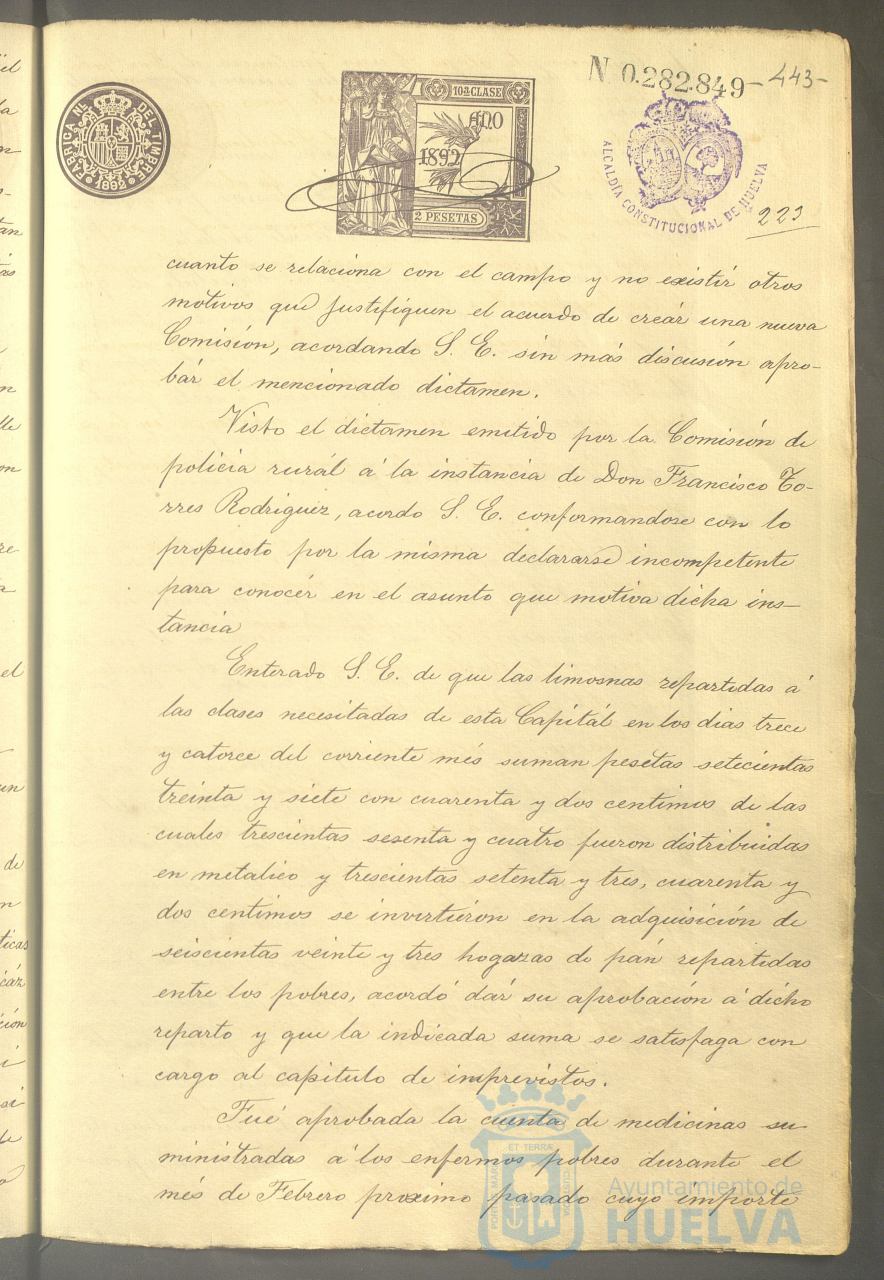 FABRICA NL DEL TIMBRE
1892
10ª CLASE
AÑO
1892
2 PESETAS
N 0.282.849 -443-
ALCALDIA CONSTITUCIONAL DE HUELVA
223
cuanto se relaciona con el campo y no existir otros
motivos que justifiquen el acuerdo de creár una nueva
Comisión, acordando S. E. sin más discusión apro-
bár el mencionado dictamen.
Visto el dictamen emitido por la Comisión de
policia rurál á la instancia de Don Francisco To-
rres Rodriguez, acordo S. E. conformandose con lo
propuesto por la misma declararse incompetente
para conocér en el asunto que motiva dicha ins-
tancia
Enterado S. E. de que las limosnas repartidas á
las clases necesitadas de esta Capitál en los dias trece
y catorce del corriente més suman pesetas setecientas
treinta y siete con cuarenta y dos centimos de las
cuales trescientas sesenta y cuatro fueron distribuidas
en metalico y trescientas setenta y tres, cuarenta y
dos centimos se invirtieron en la adquisición de
seiscientas veinte y tres hogazas de pán repartidas
entre los pobres, acordó dár su aprobación á dicho
reparto y que la indicada suma se satisfaga con
cargo al capitulo de imprevistos.
Fué aprobada la cuenta de medicinas su
ministradas á los enfermos pobres durante el
més de Febrero proximo pasado cuyo importe
ET TERRÆ
Ayuntamiento de
HUELVA